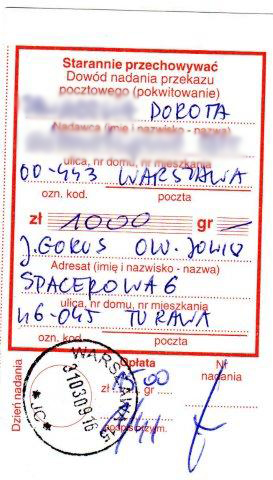 Starannie przechowywać
Dowód nadania przekazu
pocztowego (pokwitowanie)
DOROTA
Nadawca (imię i nazwisko - nazwa)
ulica, nr domu, nr mieszkania
00-443 WARSZAWA
ozn. kod. poczta
zł 1000 gr
J. GORUS OW. JOWISZ
Adresat (imię i nazwisko - nazwa)
SPACEROWA 6
ulica, nr domu, nr mieszkania
46-045 TURAWA
ozn. kod. poczta
Dzień nadania
WARSZAWA
310309.16
* JC *
Opłata
zł gr
Nr
nadania